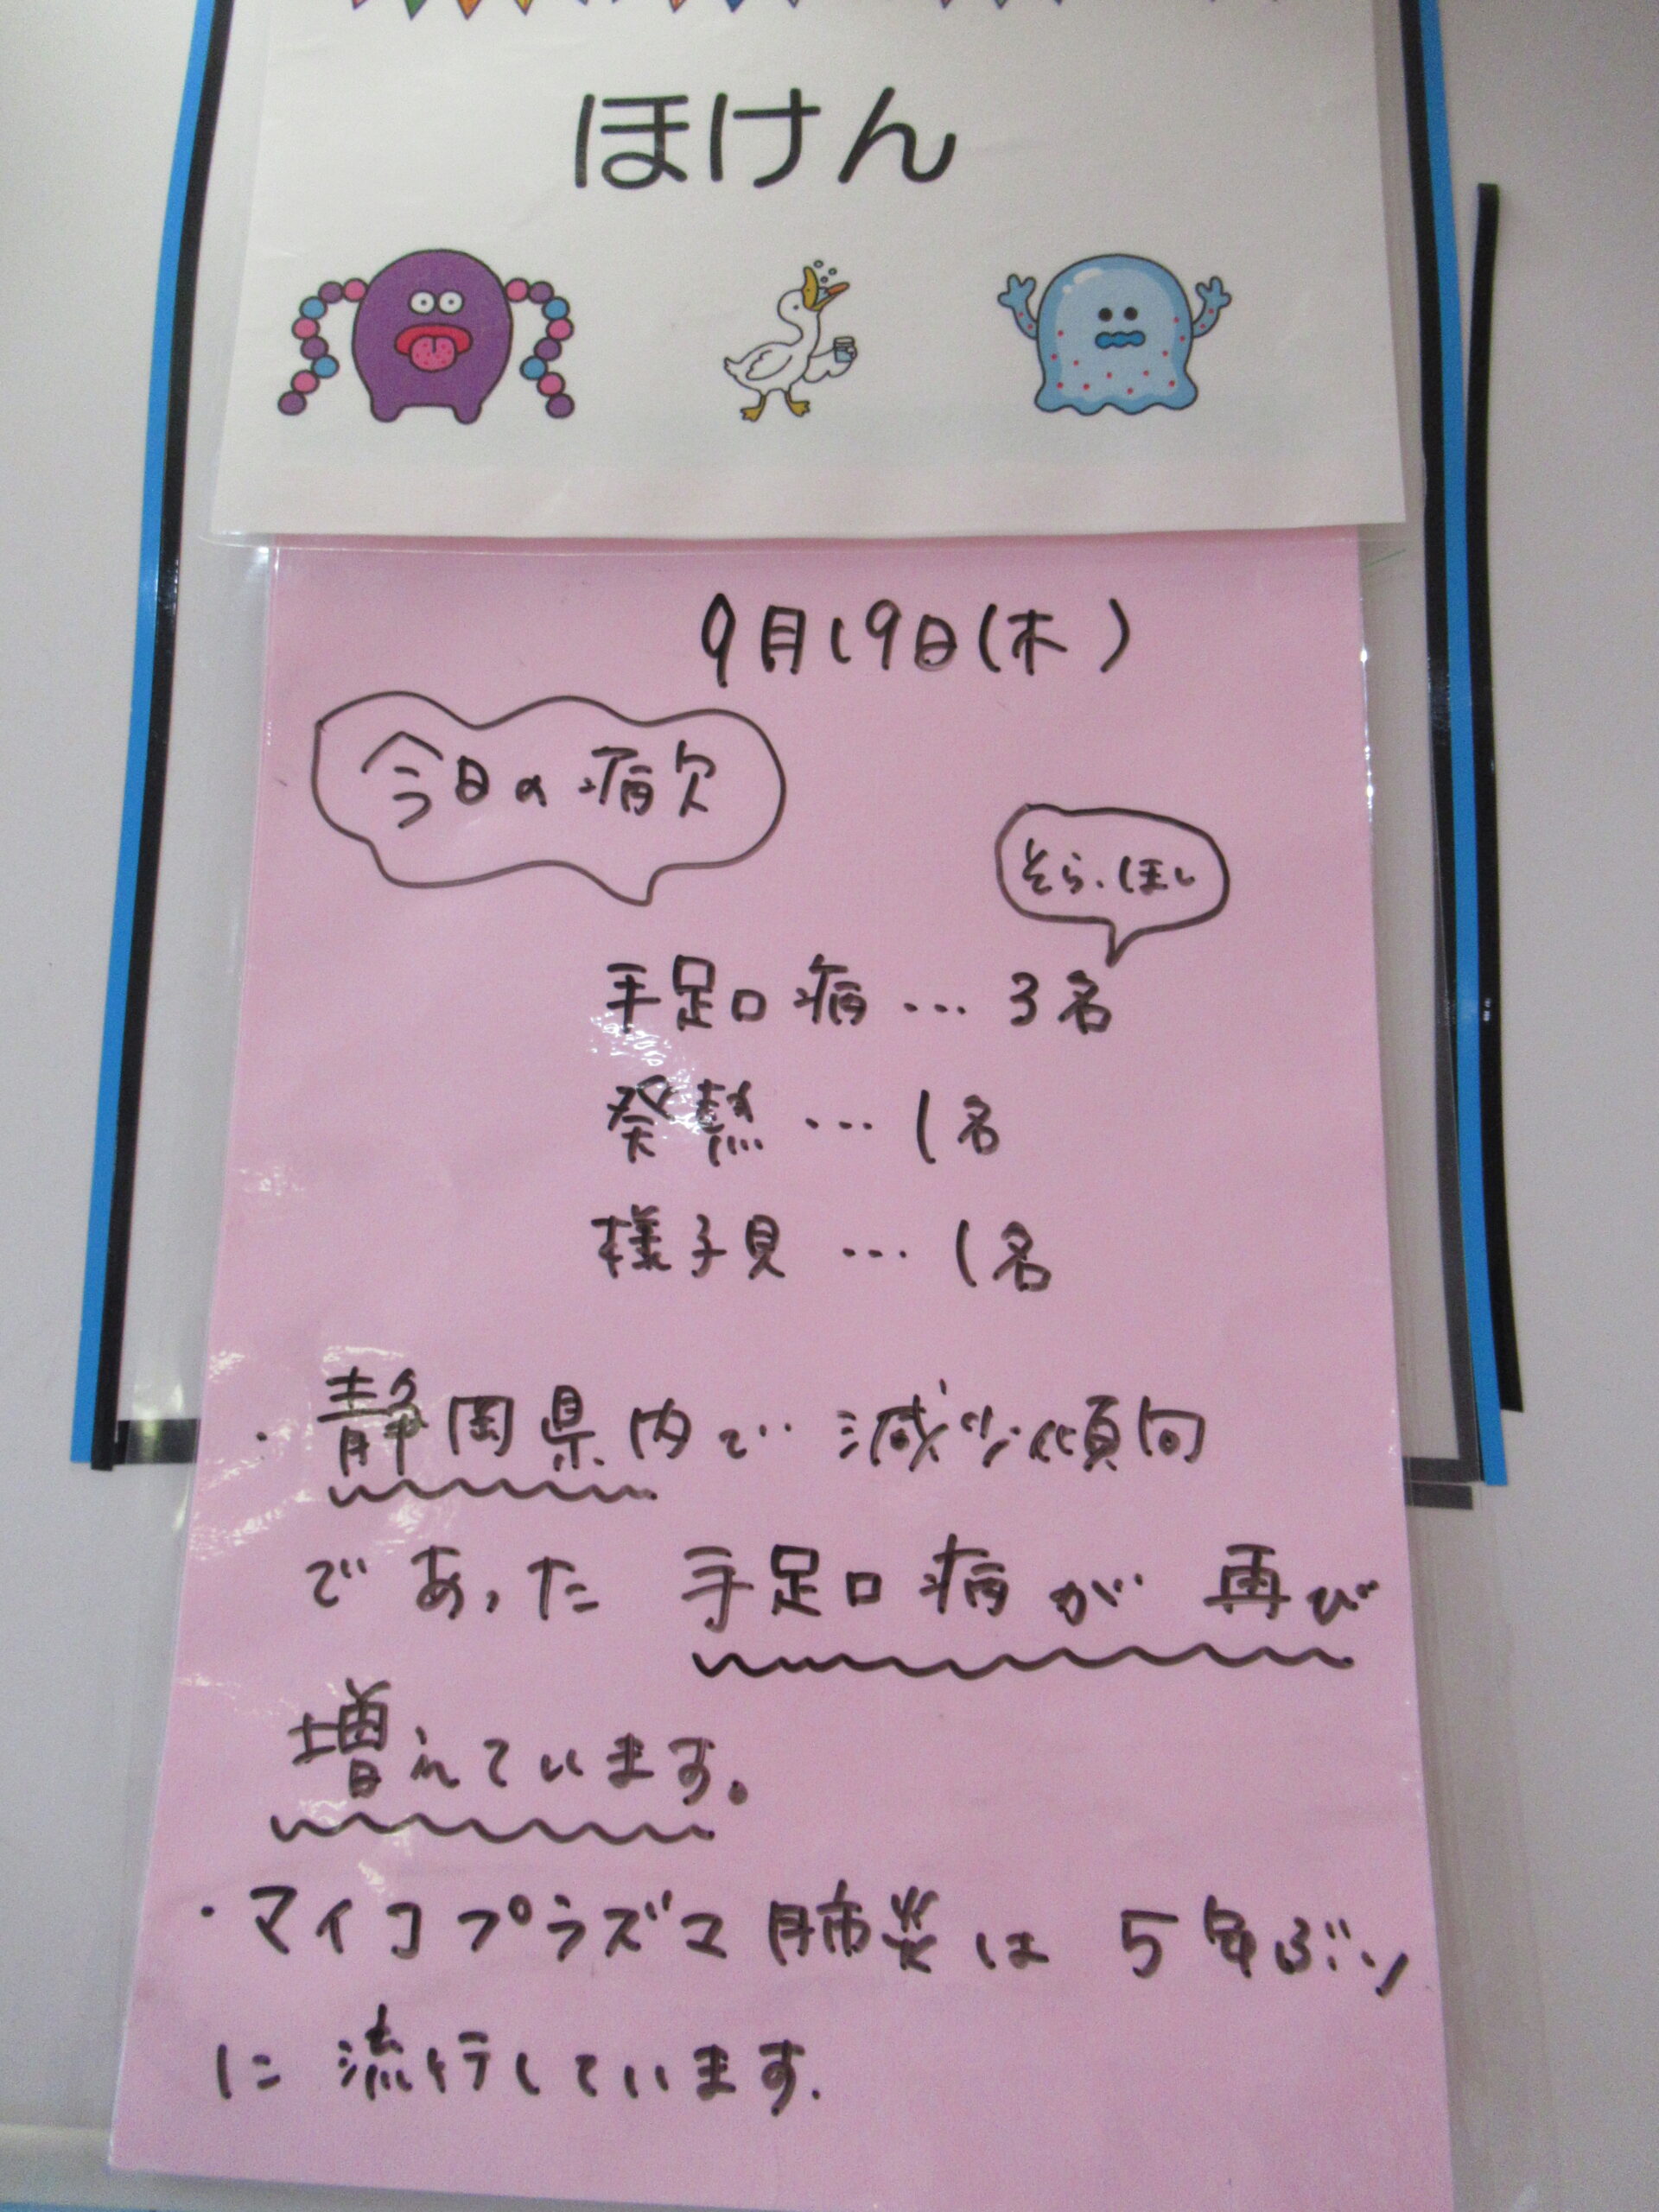 ほけん
9月19日(木)
今日の病欠
そら、ほし
手足口病…3名
発熱…1名
様子見…1名
・静岡県内で減少傾向
であった手足口病が再び
増えています。
・マイコプラズマ肺炎は5年ぶり
に流行しています.